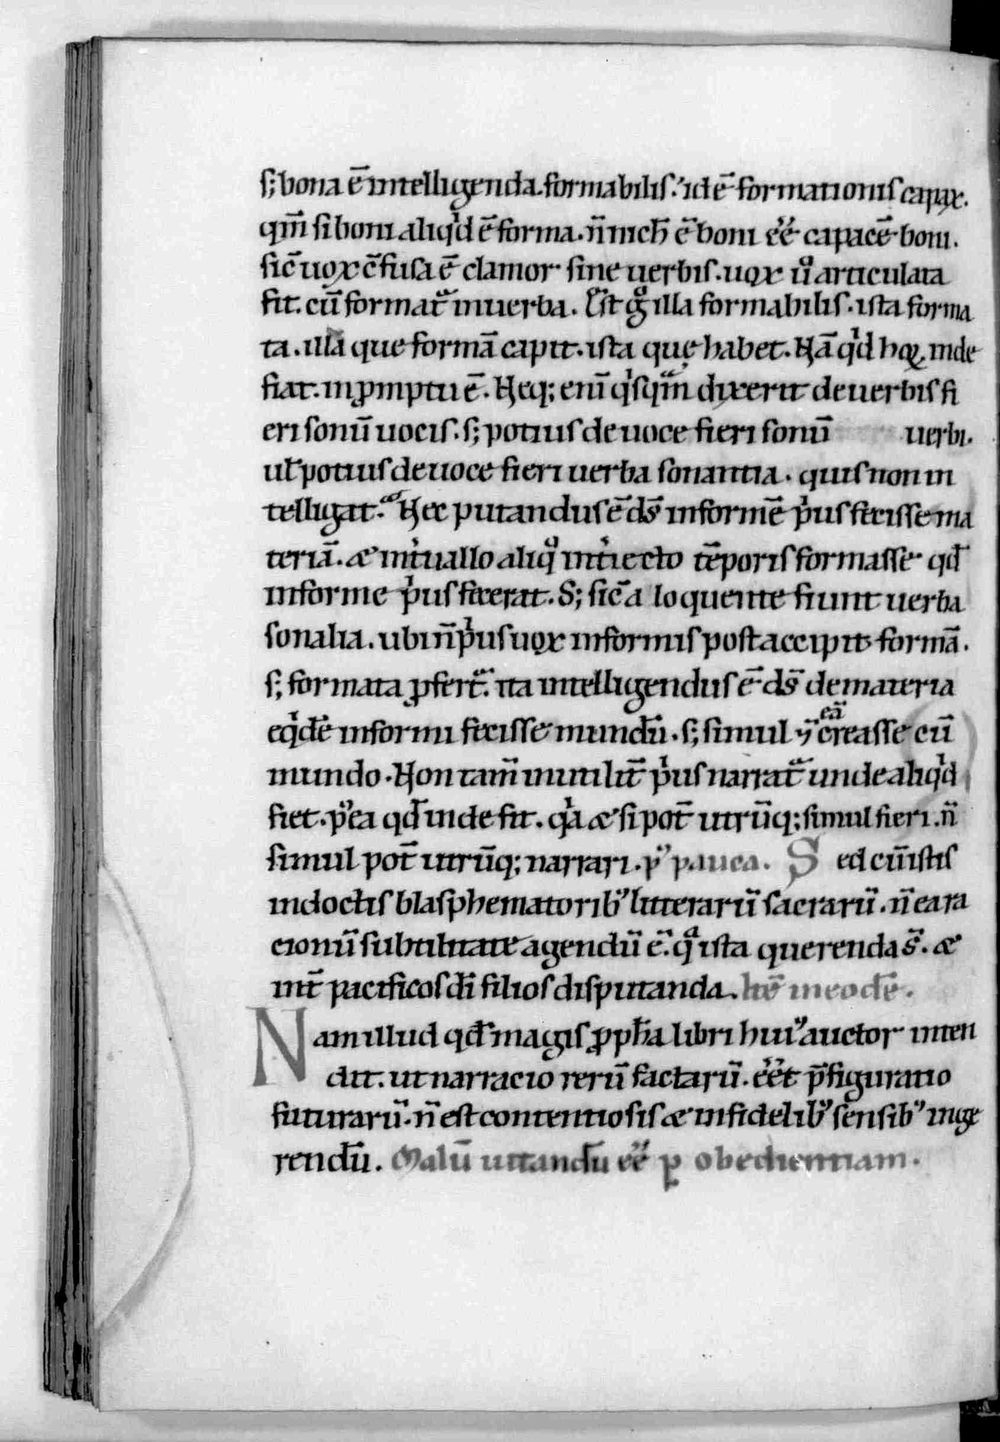 s; bona ē intelligenda. formabilis. id ē formationis capax.
qm̄ si boni aliqͥd ē forma. n̄ nich̄ ē boni ēē capacē boni.
sic̄ uox c̄fusa ē clamor sine uerbis. uox ů articulata
fit. cū format᷑ in uerba. Est gͦ illa formabilis. ista forma
ta. illa que formā capit. ista quę habet. Nā qͥd hoꝝ inde
fiat. in ꝓmptu ē. Neq; enī qͥsqᵃm dixerit de uerbis fi
eri sonū uocis. s; potius de uoce fieri sonū uerbi.
uł potius de uoce fieri uerba sonantia. quis non in
telligat. Nec putandus ē ds̄ informē pͥus fecisse ma
teriā. & int̄uallo aliqͦ int̄iecto tēporis formasse qd̄
informe pͥus fecerat. S; sic̄ a loquente fiunt uerba
sonalia. ubi n̄ pͥus uox informis post accipit formā.
s; formata ꝓfert᷑. ita intelligendus ē ds̄ de materia
eqͥdē informi fecisse mundū. s; simul eā ↄcreasse cū
mundo. Non tam̄ inutilit̄ pͥus narrat᷑ unde aliqͥd
fiet. p᷒ea qd̄ inde fit. qͥa & si pot̄ utrūq; simul fieri. n̄
simul pot̄ utrūq; narrari. p᷒ pauca. Sed cū istis
indoctis blasphematorib᷒ litterarū sacrarū. n̄ ea ra
cionū subtilitate agendū ē. qͣ ista querenda s̄. &
int̄ pacificos di̅ filios disputanda. Itē in eodē.
Nam illud qd̄ magis ꝓph̄a libri hui᷒ auctor inten
dit. ut narracio rerū factarū. ēēt p̄figuratio
futurarū. n̄ est contentiosis & infidelib᷒ sensib᷒ inge
rendū. Malū uitandū ēē ꝑ obedientiam.